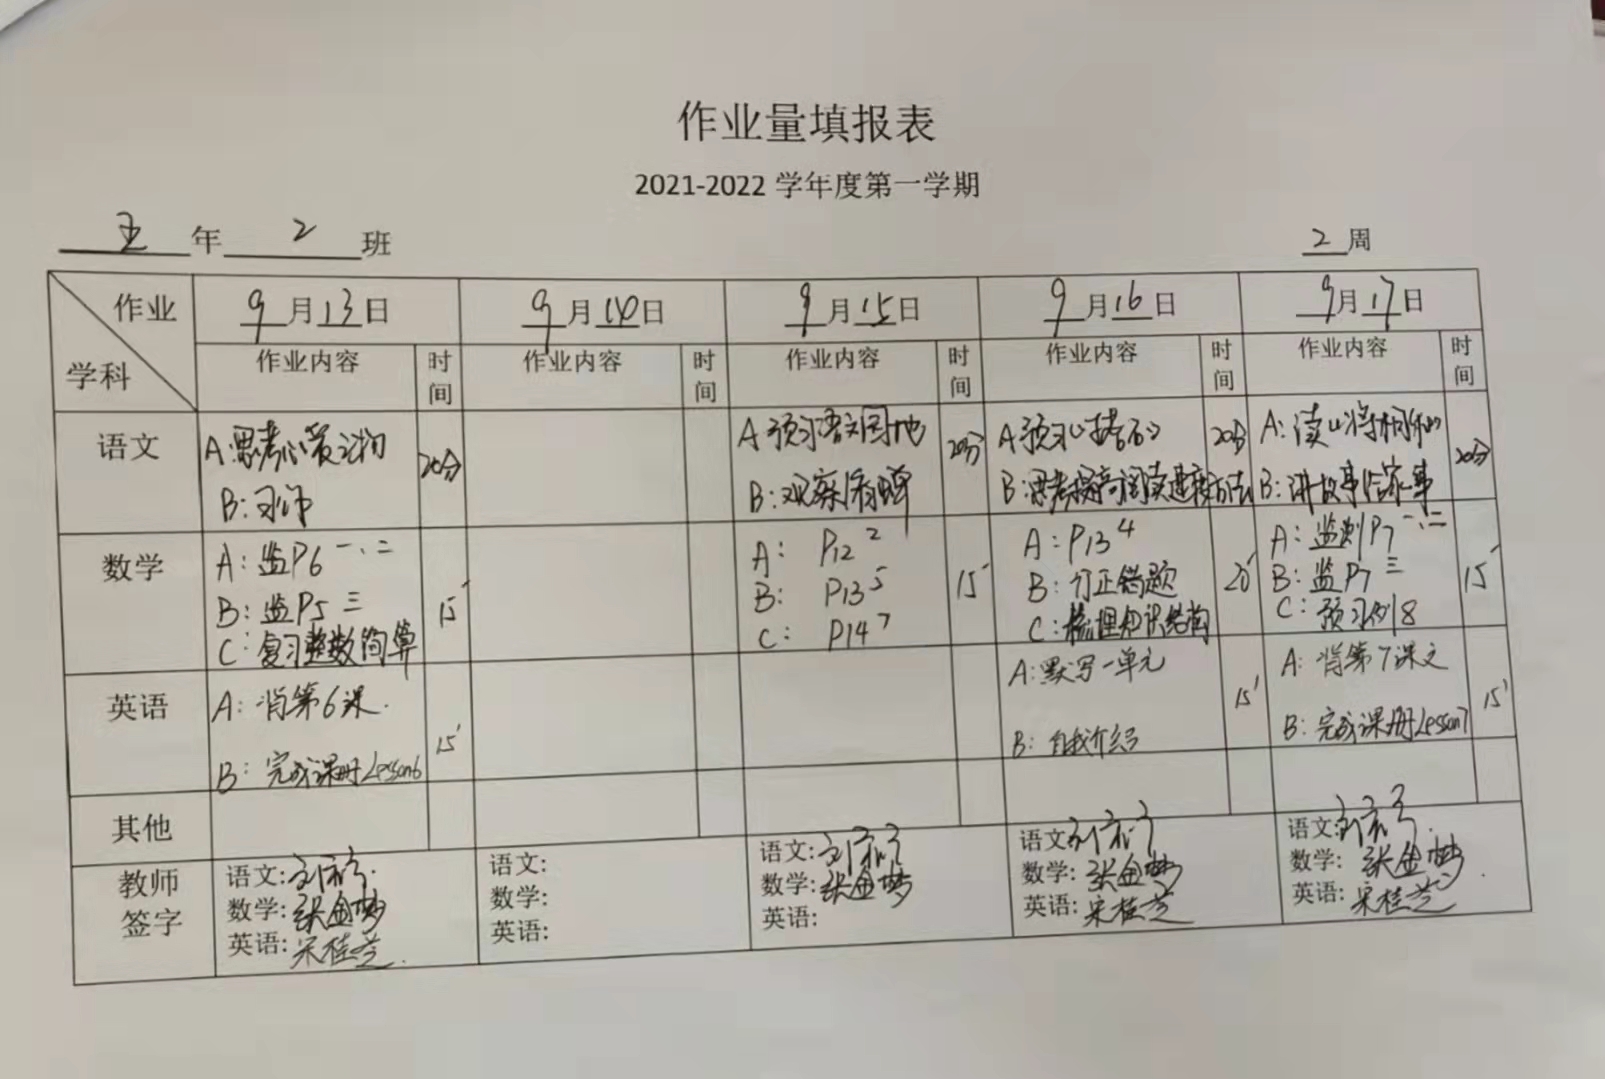 作业量填报表
2021-2022 学年度第一学期
五 年 2 班 2 周
作业 9月13日 9月14日 9月15日 9月16日 9月17日
学科 作业内容 时间 作业内容 时间 作业内容 时间 作业内容 时间 作业内容 时间
语文 A:思考 20分 A 预习语文园地 20分 A 预习《搭石》 20分 A: 读《将相和》 20分
B: B: 观察 B:思考提高阅读速度方法 B: 讲故事给家
数学 A: 监P6 一、二 15′ A: P12 2 15′ A: P13 4 20′ A: 监测P7 一、二 15′
B: 监P5 三 B: P13 5 B: 订正错题 B: 监P7 三
C: 复习整数简算 C: P14 7 C: 梳理知识结构 C: 预习例8
英语 A: 背第6课. 15′ A: 默写一单元 15′ A: 背第7课文 15′
B: 完成课册Lesson6 B: 自我介绍 B: 完成课册Lesson7
其他
教师 语文: 语文: 语文: 语文: 语文:
签字 数学: 张金梦 数学: 数学: 张金梦 数学: 张金梦 数学: 张金梦
英语: 宋桂芝 英语: 英语: 英语: 宋桂芝 英语: 宋桂芝